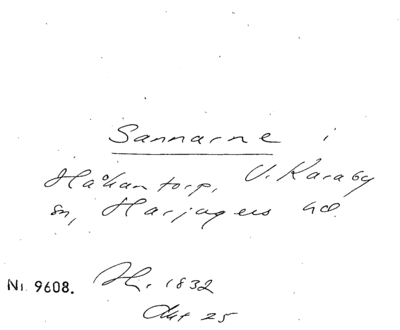 Sannarne i
Håkantorp, V. Karaby
sn, Harjagers hd.
Nr 9608. Th. 1832
Akt 25